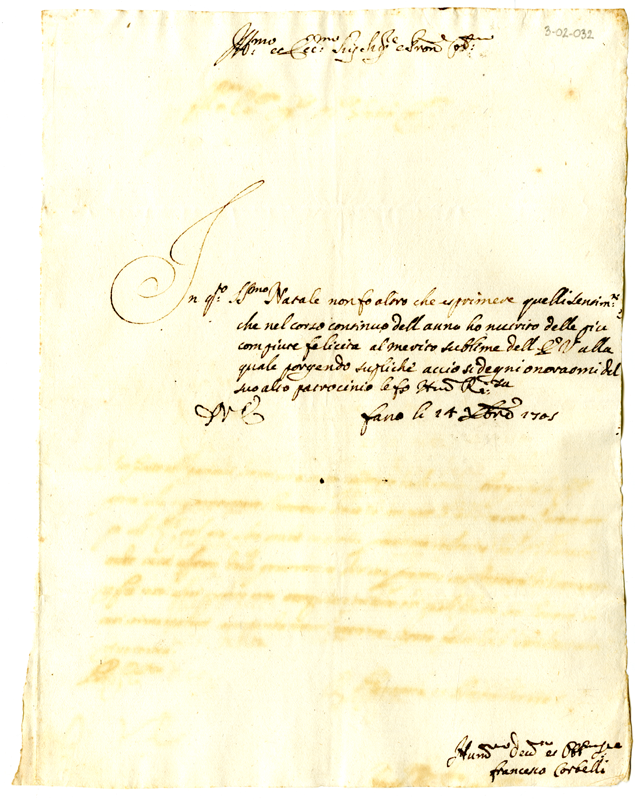 3-02-032
Ill:mo et Ecc:mo Sig: Sig:re e Pron: Col:mo
In q:to S:smo Natale non fo altro che esprimere quelli sentim:ti
che nel corso continuo dell anno ho nutrito delle piu
compiute felicita al merito sublime dell E V alla
quale porgendo supliche accio si degni onorarmi del
suo alto patrocinio le fo Hu:
D V E
fano li 14 Xbre 1705
Hum:mo Deu:mo et Obl: Se:re
francesco Corbelli